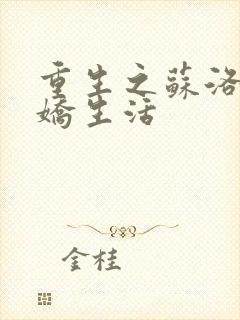 重生之蘇洛
嬌生活
金桂